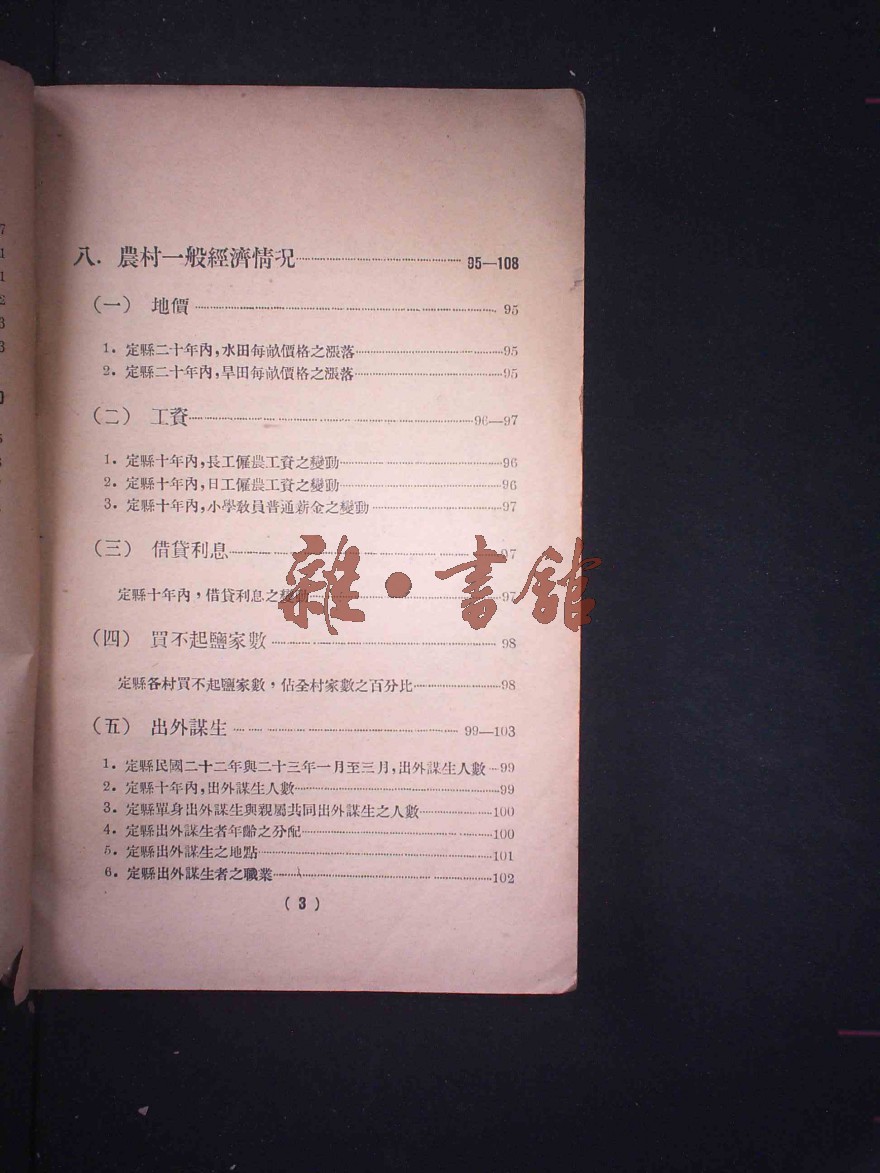 八．農村一般經濟情況 95—108
（一） 地價 95
1．定縣二十年內，水田每畝價格之漲落 95
2．定縣二十年內，旱田每畝價格之漲落 95
（二） 工資 96—97
1．定縣十年內，長工僱農工資之變動 96
2．定縣十年內，日工僱農工資之變動 96
3．定縣十年內，小學教員普通薪金之變動 97
（三） 借貸利息 97
定縣十年內，借貸利息之變動 97
（四） 買不起鹽家數 98
定縣各村買不起鹽家數，佔全村家數之百分比 98
（五） 出外謀生 99—103
1．定縣民國二十二年與二十三年一月至三月，出外謀生人數 99
2．定縣十年內，出外謀生人數 99
3．定縣單身出外謀生與親屬共同出外謀生之人數 100
4．定縣出外謀生者年齡之分配 100
5．定縣出外謀生之地點 101
6．定縣出外謀生者之職業 102
（3）
雜·書館